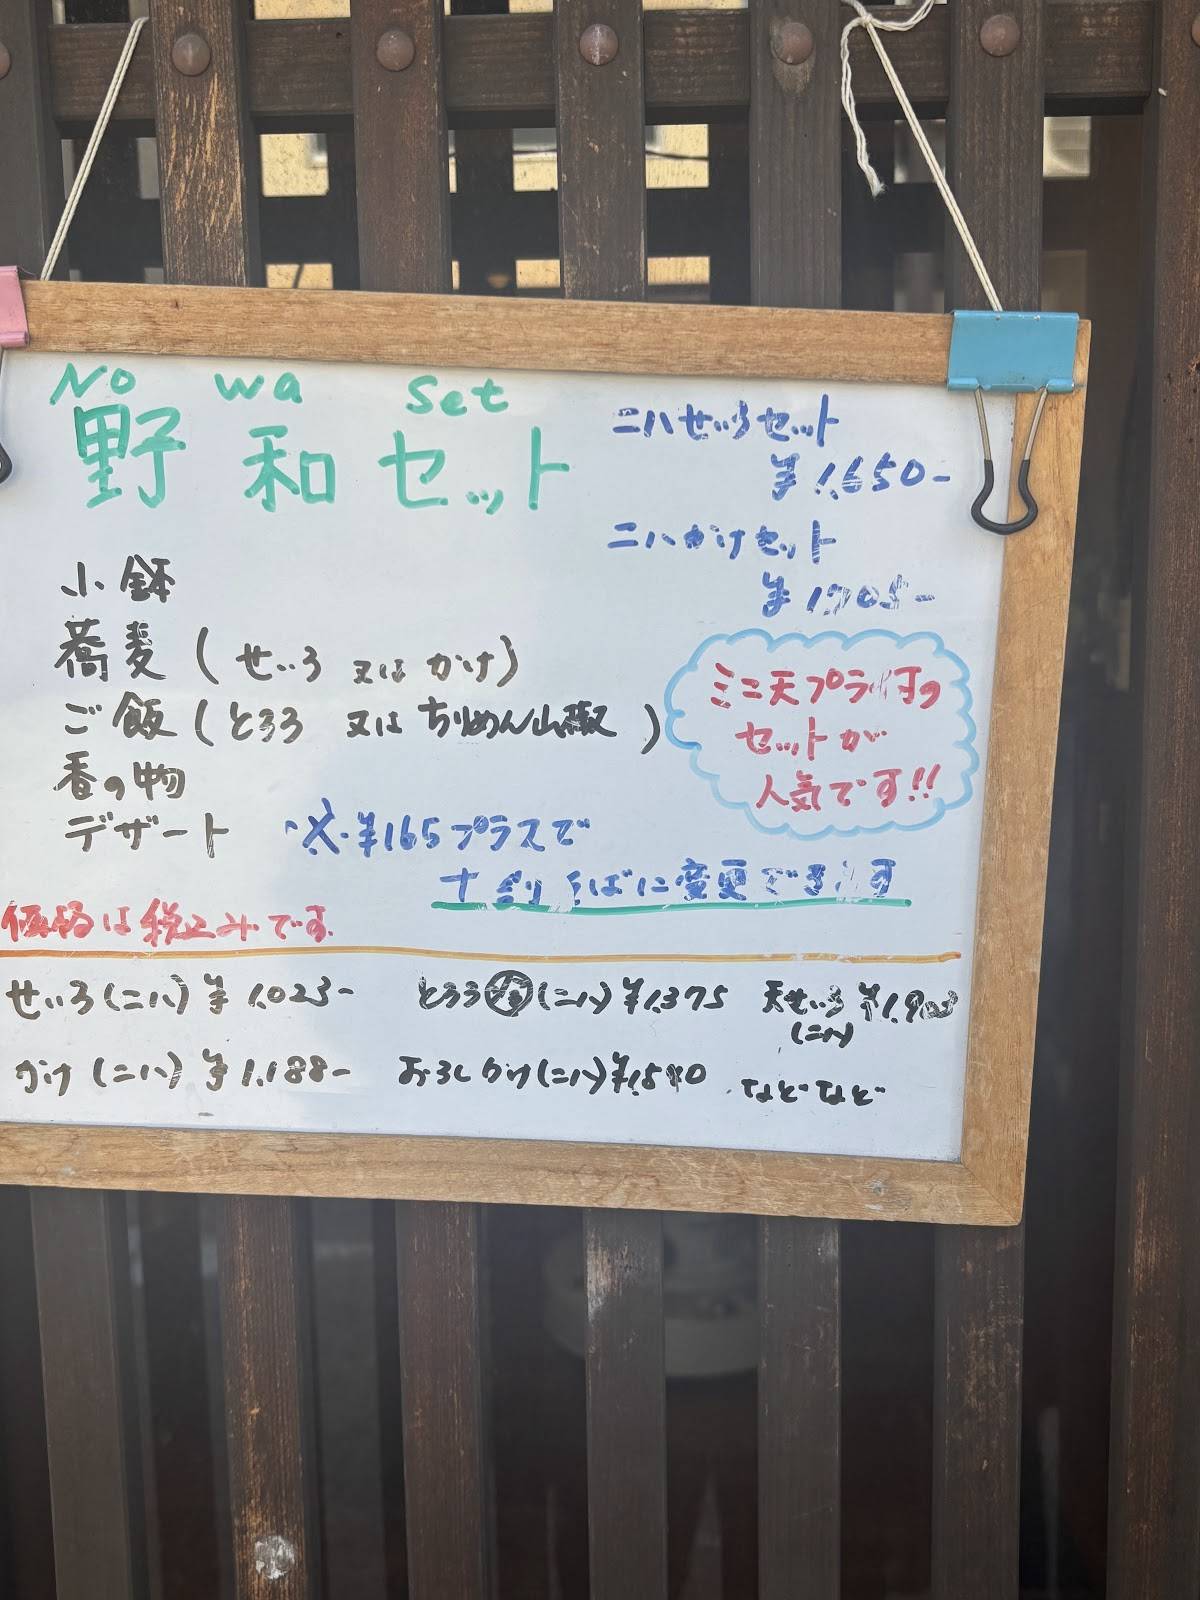 No wa set
野和セット
二八せいろセット
¥1,650-
二八かけセット
¥1705-
小鉢
蕎麦(せいろ 又は かけ)
ご飯(とろろ 又は ちりめん山椒)
香の物
デザート
ミニ天プラ付の
セットが
人気です!!
※¥165プラスで
十割そばに変更できます
価格は税込みです
せいろ(二八)¥1,023-
とろろ(二八)¥1,375
天せいろ
(二八)
かけ(二八)¥1,188-
おろしかけ(二八)
などなど